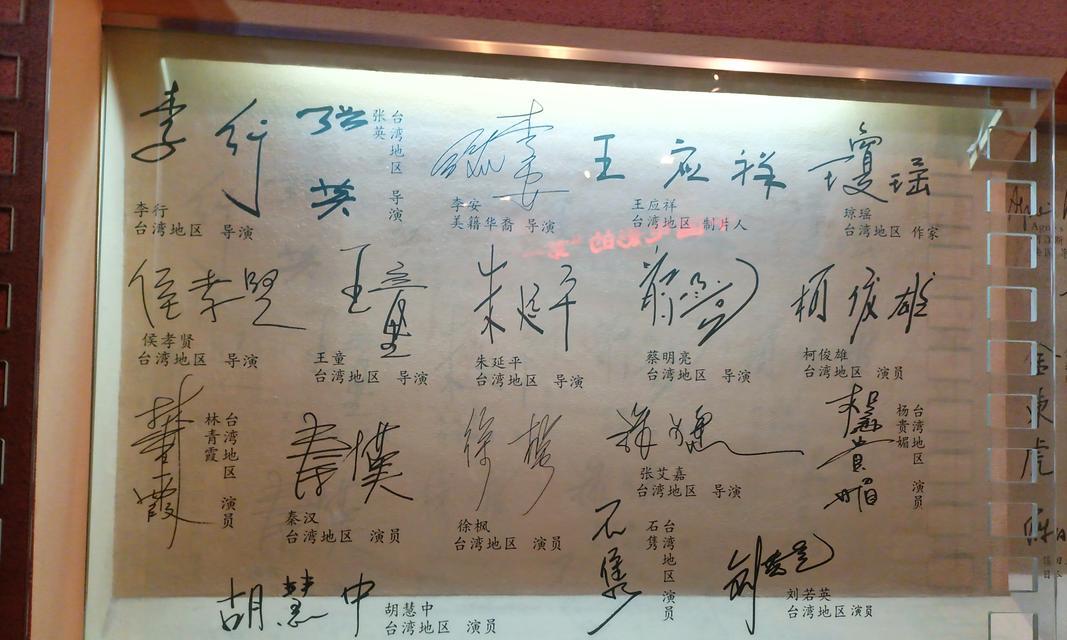 李行
李行
台湾地区 导演
张英
张英
台湾地区 导演
李安
李安
美籍华裔 导演
王应祥
王应祥
台湾地区 制片人
琼瑶
琼瑶
台湾地区 作家
侯孝贤
侯孝贤
台湾地区 导演
王童
王童
台湾地区 导演
朱延平
朱延平
台湾地区 导演
蔡明亮
台湾地区 导演
柯俊雄
柯俊雄
台湾地区 演员
林青霞
林青霞
台湾地区 演员
秦汉
秦漢
台湾地区 演员
徐枫
徐楓
台湾地区 演员
张艾嘉
台湾地区 导演
楊貴媚
杨贵媚
台湾地区 演员
胡慧中
胡慧中
台湾地区 演员
石隽
石隽
台湾地区 演员
刘若英
台湾地区 演员